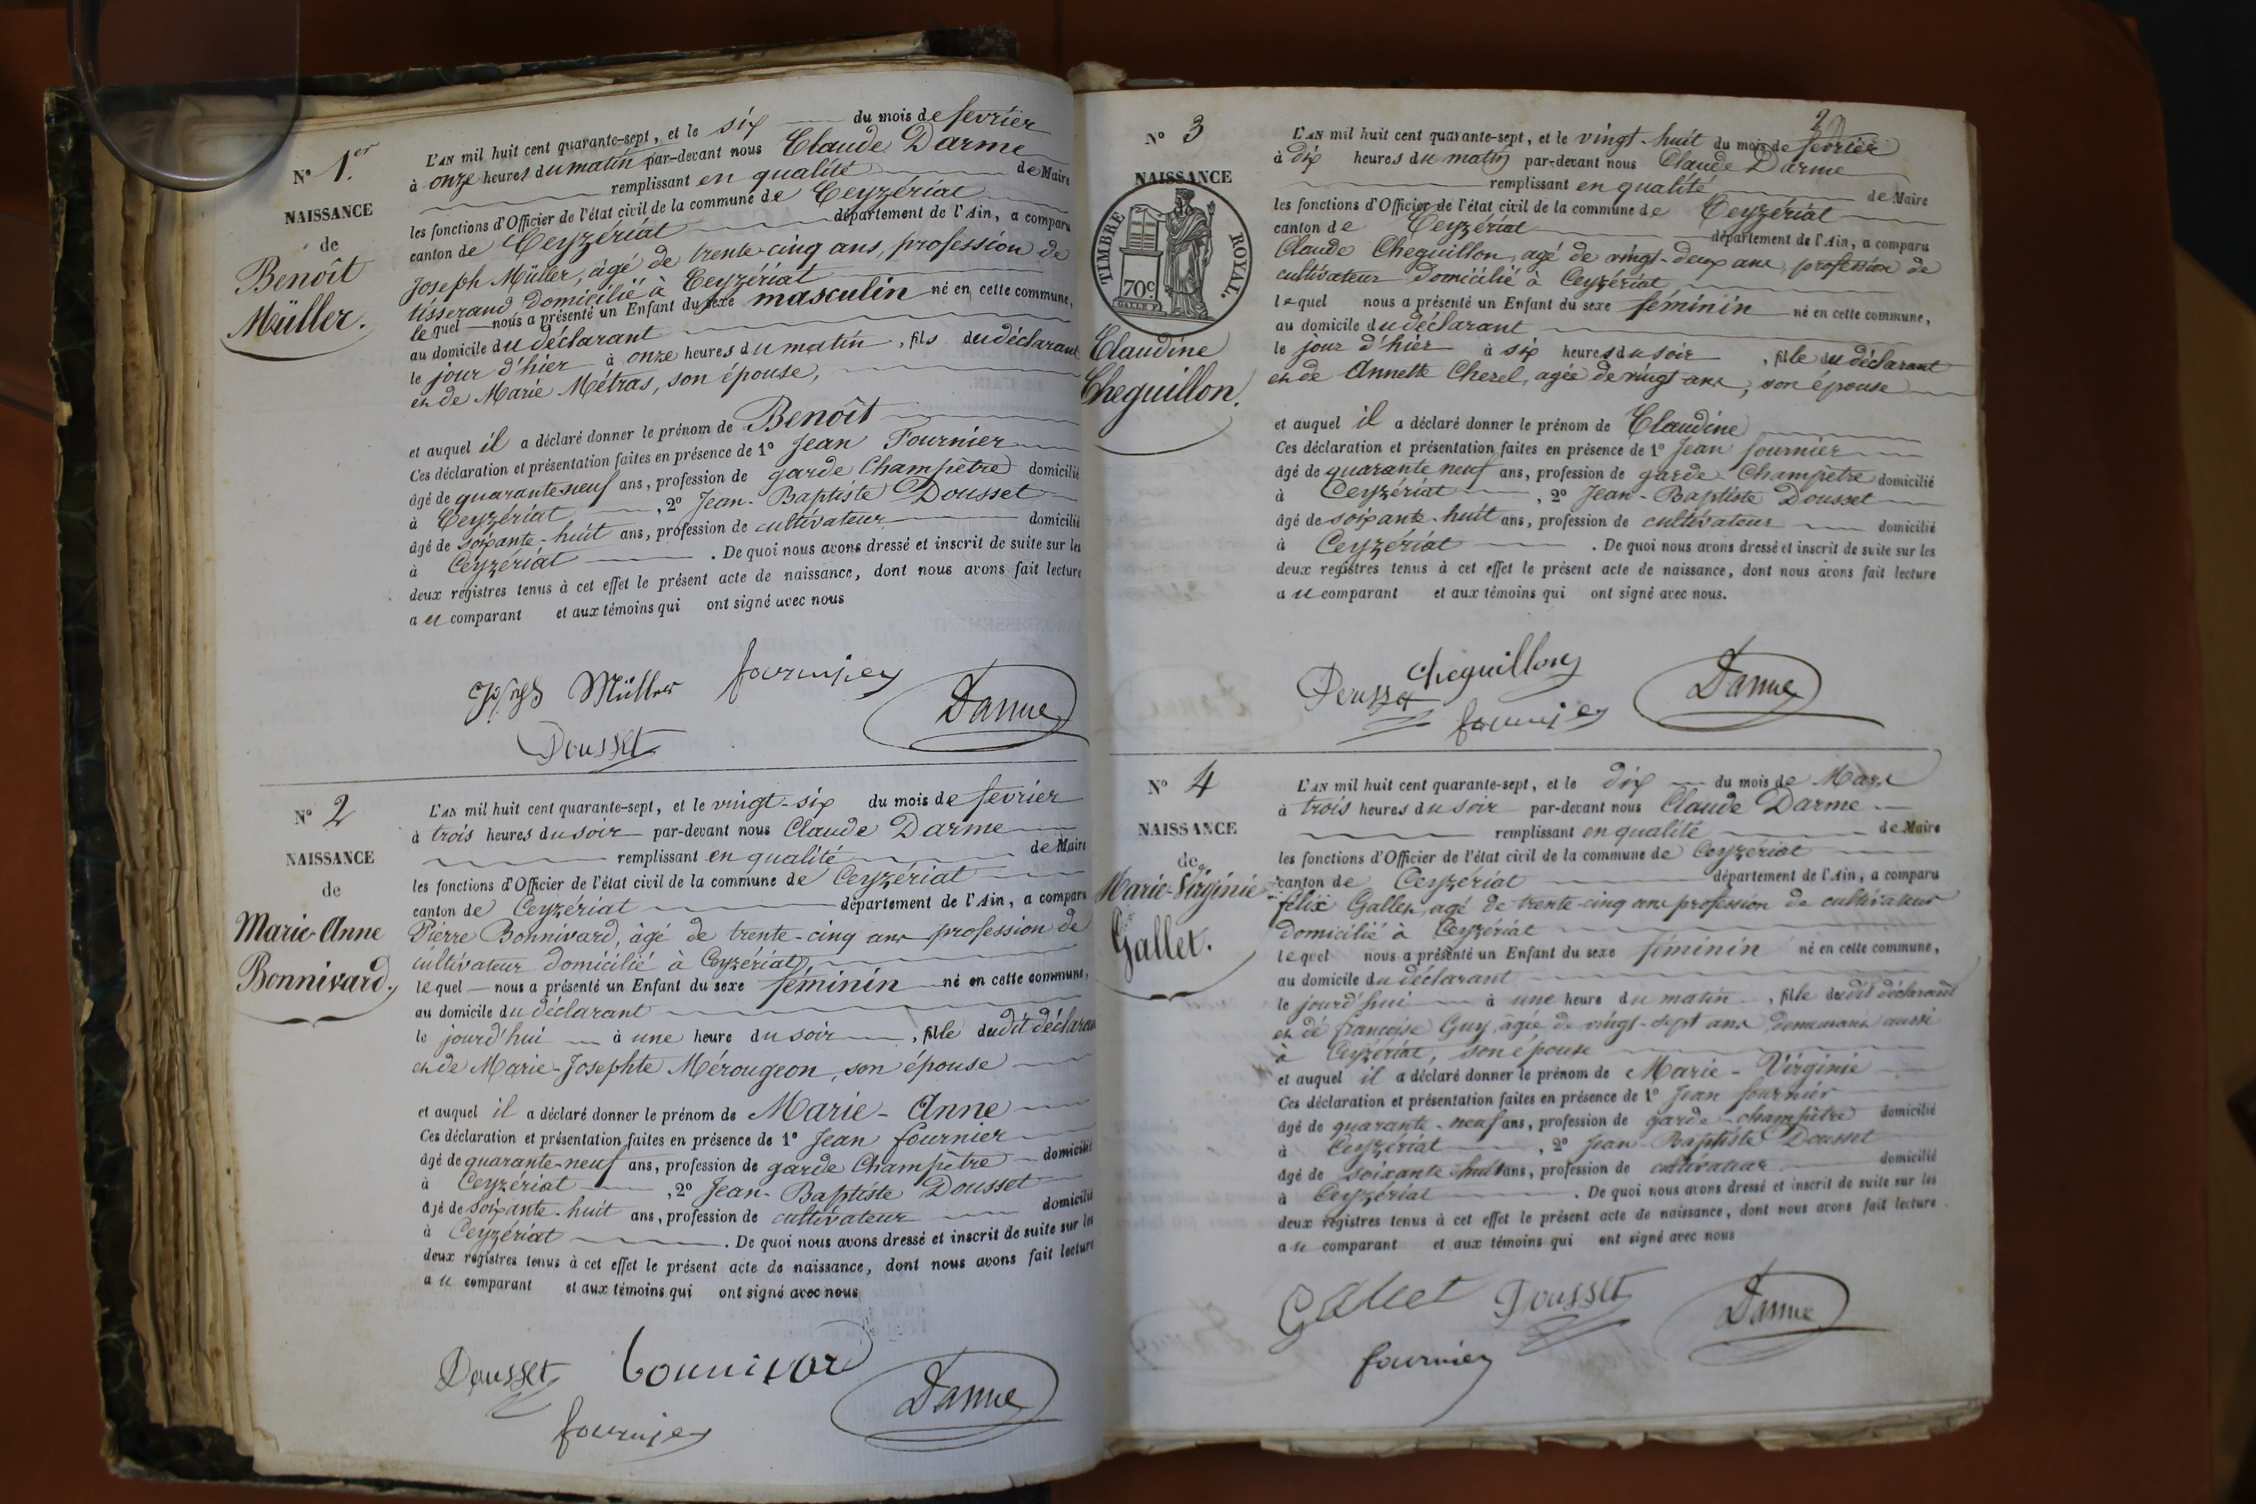 N° 1er
NAISSANCE
de
Benoît
Müller.
L'AN mil huit cent quarante-sept, et le six du mois de fevrier
à onze heures du matin par-devant nous Claude Darme
remplissant en qualité de Maire
les fonctions d'Officier de l'état civil de la commune de Ceyzériat
canton de Ceyzériat département de l'Ain, a comparu
Joseph Müller, âgé de trente cinq ans, profession de
tisserand domicilié à Ceyzériat
lequel nous a présenté un Enfant du sexe masculin né en cette commune,
au domicile du déclarant
le jour d'hier à onze heures du matin, fils du déclarant
et de Marie Métras, son épouse,
et auquel il a déclaré donner le prénom de Benoît
Ces déclaration et présentation faites en présence de 1° Jean Fournier
âgé de quarante neuf ans, profession de garde Champêtre domicilié
à Ceyzériat, 2° Jean-Baptiste Dousset
âgé de soixante-huit ans, profession de cultivateur domicilié
à Ceyzériat. De quoi nous avons dressé et inscrit de suite sur les
deux registres tenus à cet effet le présent acte de naissance, dont nous avons fait lecture
au comparant et aux témoins qui ont signé avec nous
Müller fournier
Darme
Dousset
N° 2
NAISSANCE
de
Marie-Anne
Bonnivard.
L'AN mil huit cent quarante-sept, et le vingt-six du mois de fevrier
à trois heures du soir par-devant nous Claude Darme
remplissant en qualité de Maire
les fonctions d'Officier de l'état civil de la commune de Ceyzériat
canton de Ceyzériat département de l'Ain, a comparu
Pierre Bonnivard, âgé de trente-cinq ans profession de
cultivateur domicilié à Ceyzeriat
lequel nous a présenté un Enfant du sexe féminin né en cette commune,
au domicile du déclarant
le jourd'hui à une heure du soir, fille dudit déclarant
et de Marie-Josephte Mérougeon, son épouse
et auquel il a déclaré donner le prénom de Marie-Anne
Ces déclaration et présentation faites en présence de 1° Jean fournier
âgé de quarante-neuf ans, profession de garde Champêtre domicilié
à Ceyzériat, 2° Jean-Baptiste Dousset
âgé de soixante-huit ans, profession de cultivateur domicilié
à Ceyzériat. De quoi nous avons dressé et inscrit de suite sur les
deux registres tenus à cet effet le présent acte de naissance, dont nous avons fait lecture
au comparant et aux témoins qui ont signé avec nous
Dousset bonnivard
Darme
fournier
N° 3
NAISSANCE
TIMBRE ROYAL.
70c
Claudine
Cheguillon.
L'AN mil huit cent quarante-sept, et le vingt-huit du mois de fevrier
à dix heures du matin par-devant nous Claude Darme
remplissant en qualité de Maire
les fonctions d'Officier de l'état civil de la commune de Ceyzériat
canton de Ceyzériat département de l'Ain, a comparu
Claude Cheguillon, agé de vingt-deux ans, profession de
cultivateur domicilié à Ceyzériat
lequel nous a présenté un Enfant du sexe féminin né en cette commune,
au domicile du déclarant
le jour d'hier à six heures du soir, fille du déclarant
et de Annette Cherel, agée de vingt ans, son épouse
et auquel il a déclaré donner le prénom de Claudine
Ces déclaration et présentation faites en présence de 1° Jean fournier
âgé de quarante neuf ans, profession de garde Champêtre domicilié
à Ceyzériat, 2° Jean-Baptiste Dousset
âgé de soixante-huit ans, profession de cultivateur domicilié
à Ceyzériat. De quoi nous avons dressé et inscrit de suite sur les
deux registres tenus à cet effet le présent acte de naissance, dont nous avons fait lecture
au comparant et aux témoins qui ont signé avec nous.
Dousset Cheguillon Darme
fournier
N° 4
NAISSANCE
de
Marie-Virginie
Gallet.
L'AN mil huit cent quarante-sept, et le dix du mois de Mars
à trois heures du soir par-devant nous Claude Darme
remplissant en qualité de Maire
les fonctions d'Officier de l'état civil de la commune de Ceyzeriat
canton de Ceyzériat département de l'Ain, a comparu
félix Gallet, agé de trente-cinq ans profession de cultivateur
domicilié à Ceyzériat
lequel nous a présenté un Enfant du sexe féminin né en cette commune,
au domicile du déclarant
le jourd'hui à une heure du matin, fille dudit déclarant
et de françoise Guy, âgée de vingt-sept ans demeurant aussi
à Ceyzériat, son épouse
et auquel il a déclaré donner le prénom de Marie-Virginie
Ces déclaration et présentation faites en présence de 1° Jean fournier
âgé de quarante-neuf ans, profession de garde-champêtre domicilié
à Ceyzériat, 2° Jean-Baptiste Dousset
âgé de soixante-huit ans, profession de cultivateur domicilié
à Ceyzériat. De quoi nous avons dressé et inscrit de suite sur les
deux registres tenus à cet effet le présent acte de naissance, dont nous avons fait lecture
au comparant et aux témoins qui ont signé avec nous
Gallet Dousset Darme
fournier